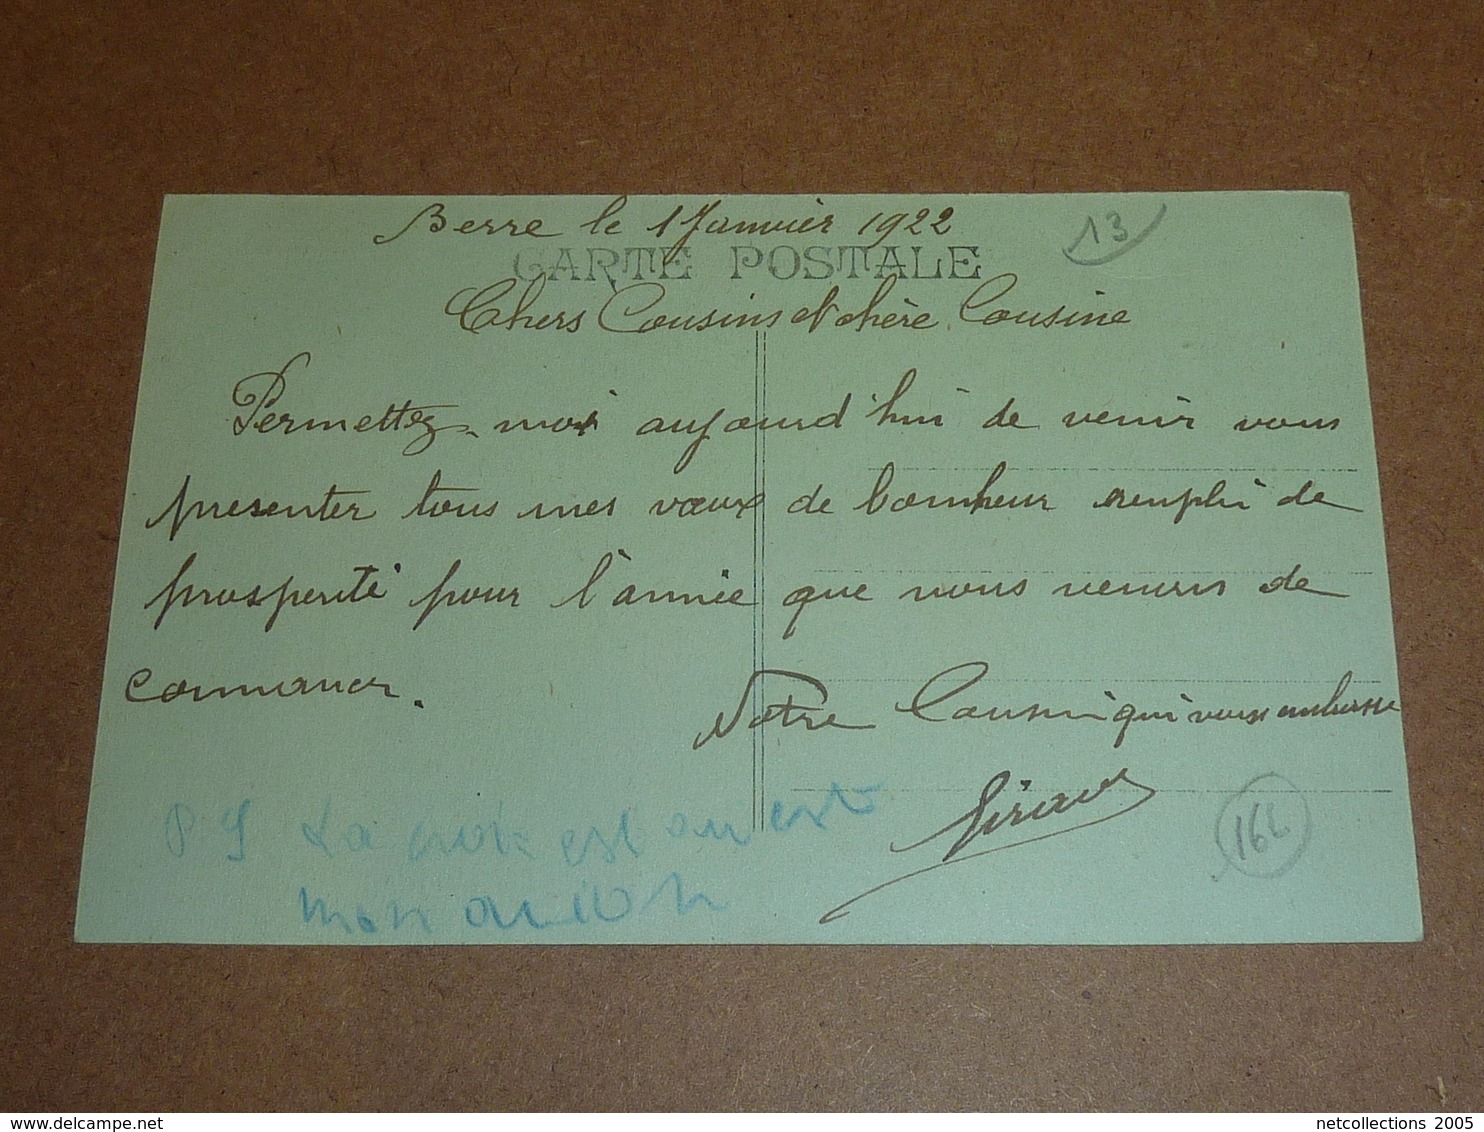 Berre le 1 Janvier 1922
13
CARTE POSTALE
Chers Cousins et chère Cousine
Permettez-moi aujourd'hui de venir vous
presenter tous mes vœux de bonheur rempli de
prosperité pour l'année que nous venons de
commancer.
Votre Cousin qui vous embrasse
P.S La croix est
mon
delcampe.net
netcollections 2005